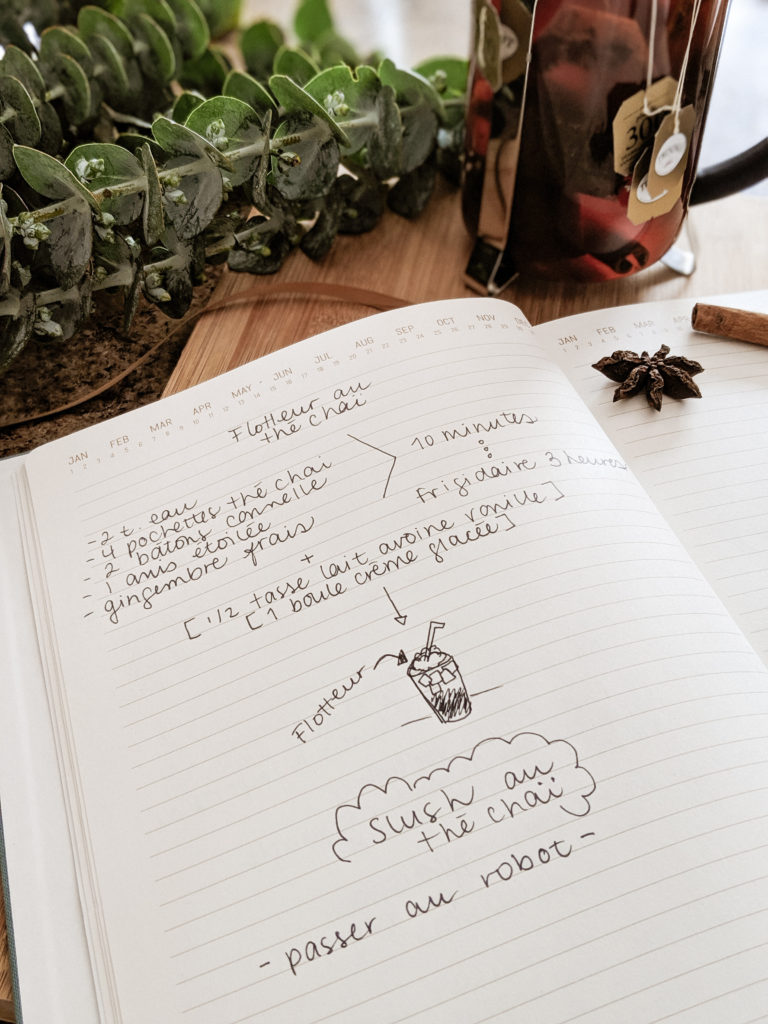 JAN FEB MAR APR MAY JUN JUL AUG SEP OCT NOV
JAN FEB MAR
Flotteur au
thé chaï
- 2 t. eau
- 4 pochettes thé chai
- 2 bâtons cannelle
- 1 anis étoilée
- gingembre frais
10 minutes
frigidaire 3 heures
+
[ 1/2 tasse lait avoine vanille ]
[ 1 boule crème glacée ]
Flotteur
Slush au
thé chaï
- passer au robot -